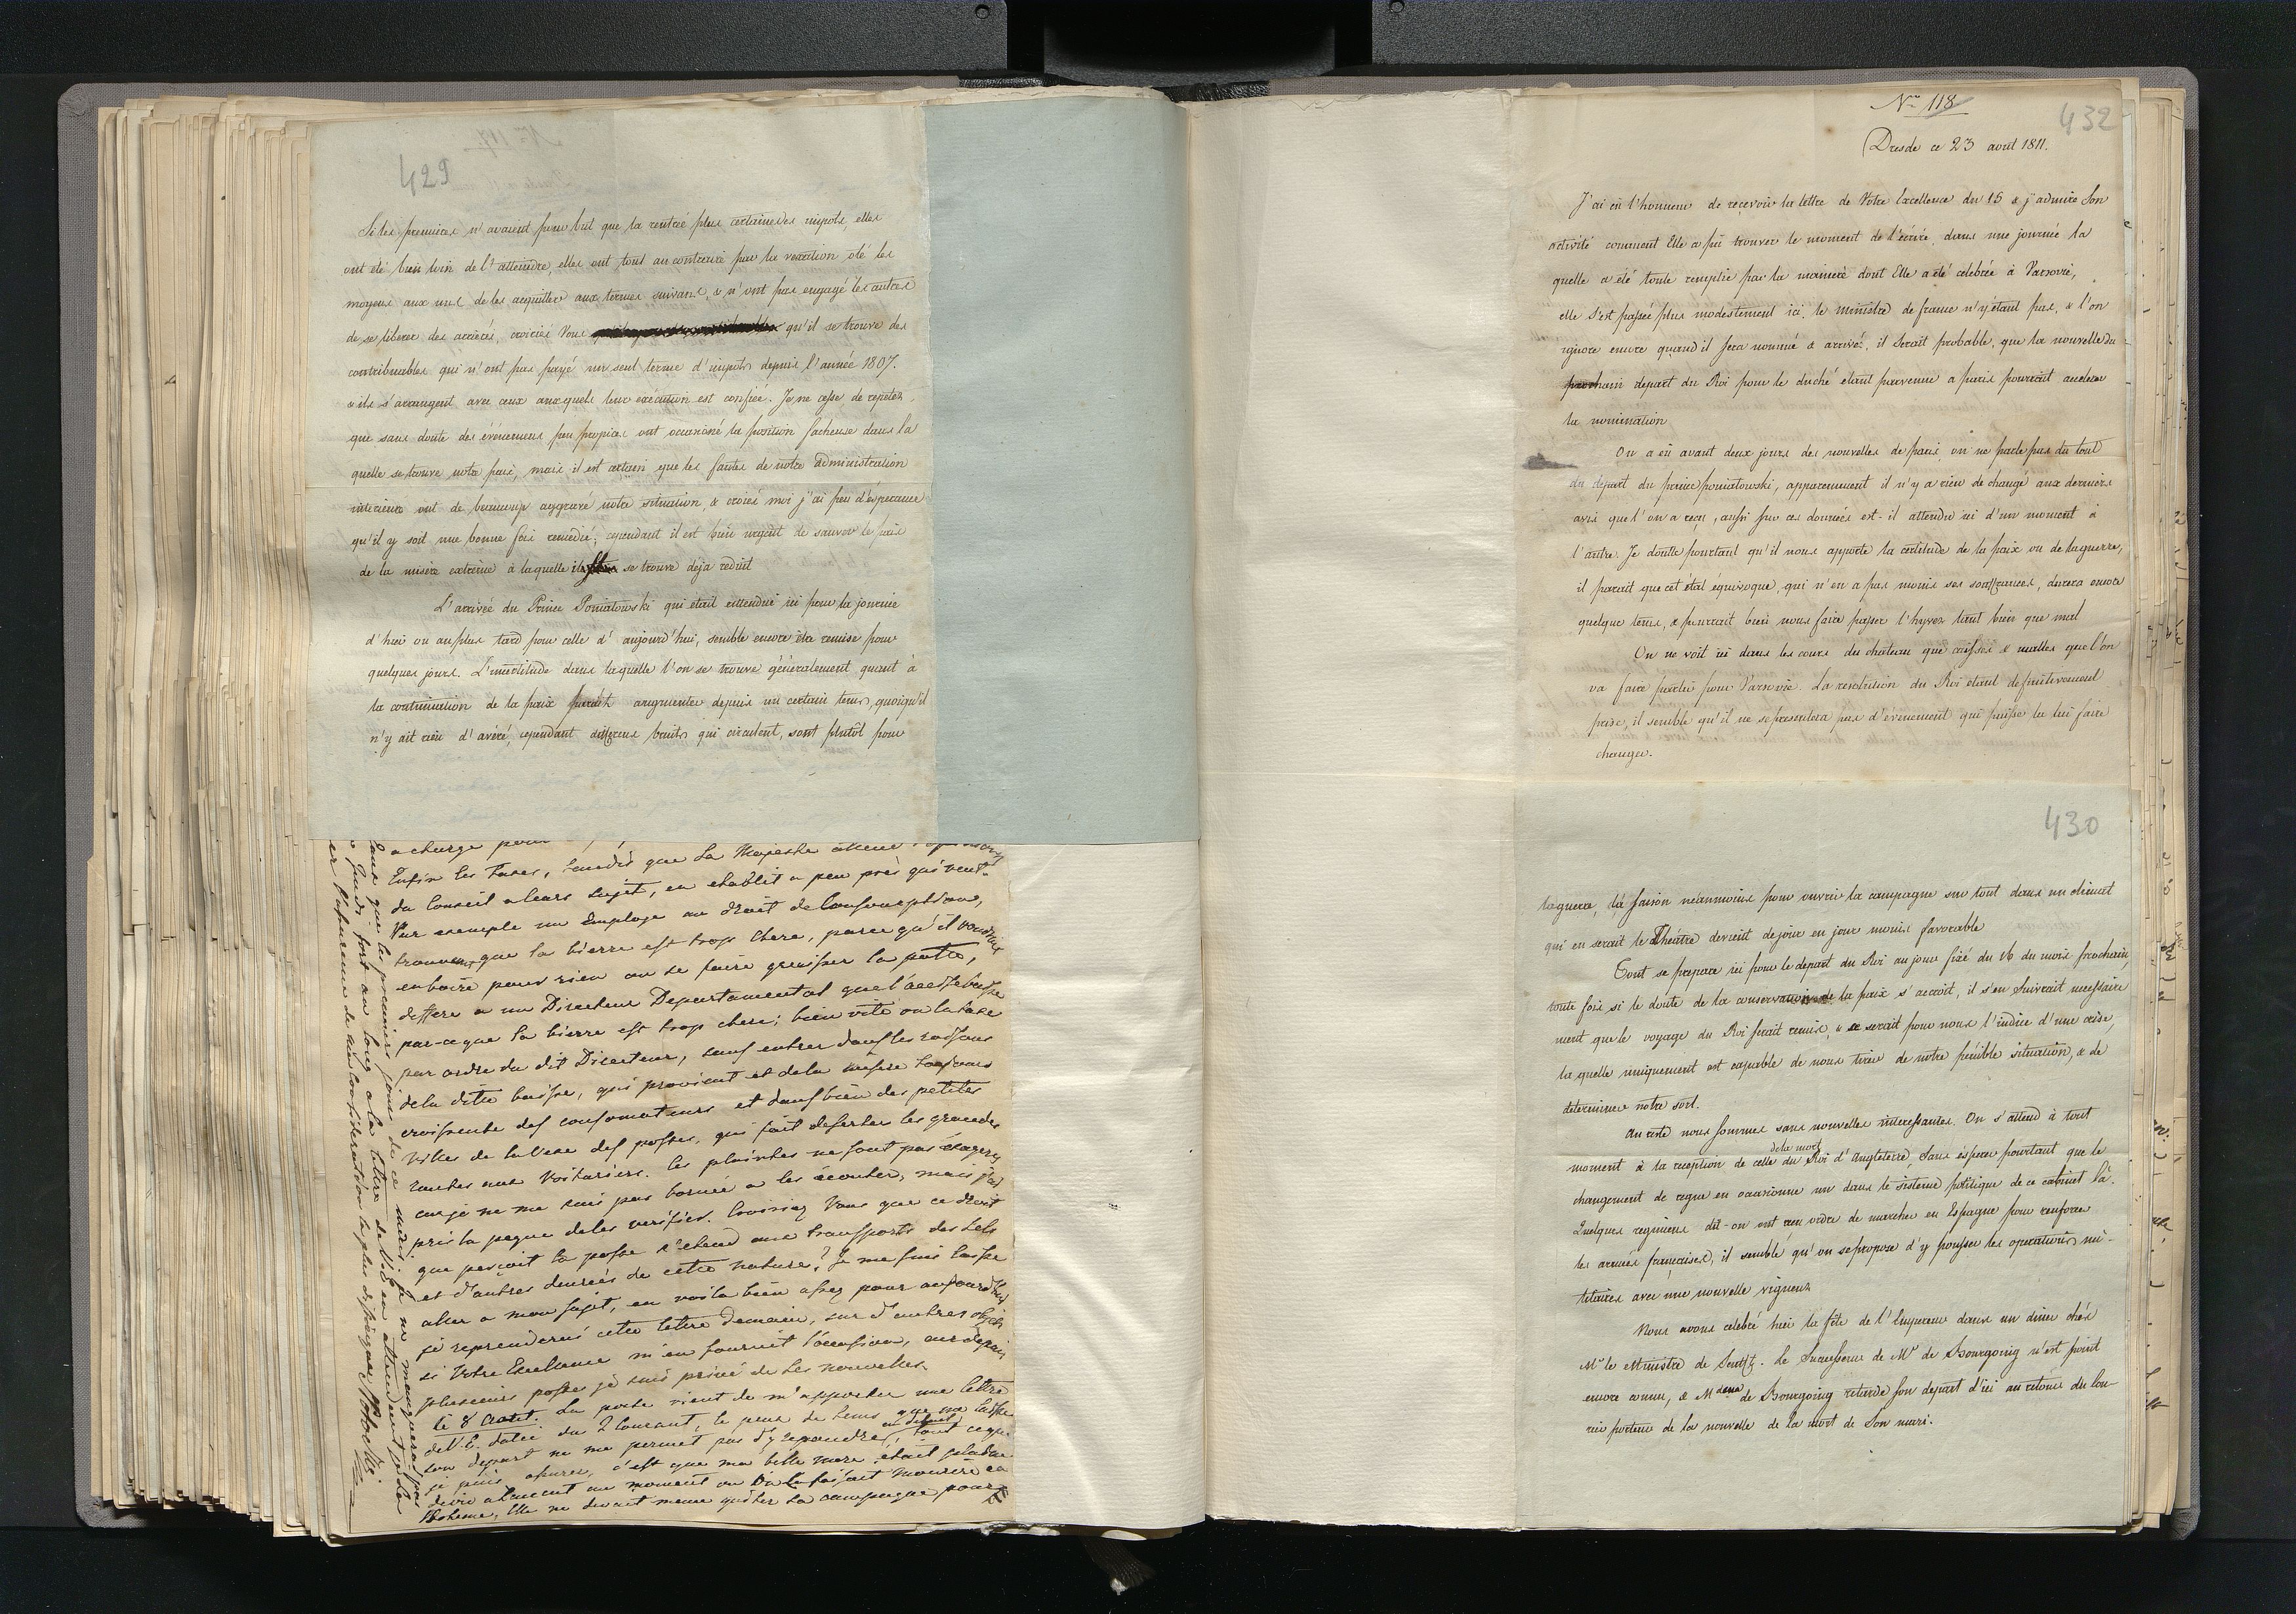 429
Si les premieres n'avaient pour but que la rentrée plus certaine des impots, elles
ont été bien loin de l'atteindre, elles ont tout au contraire par la vexation oté les
moyens aux uns de les acquitter aux termes suivans, & n'ont pas engagé les autres
de se liberer des arrierés, croiriés Vous qu'il se trouve des
contribuables qui n'ont pas payé un seul terme d'impots depuis l'année 1807.
& ils s'arrangent avec ceux auxquels leur exécution est confiée. Je ne cesse de repeter,
que sans doute des événemens peu propices ont occasioné la position facheuse dans la
quelle se trouve notre pais, mais il est certain que les fautes de notre administration
interieure ont de beaucoup aggravé notre situation, & croiés moi j'ai peu d'ésperance
qu'il y soit une bonne fois remedié; cependant il est bien urgent de sauver le pais
de la misère extreme à laquelle il se trouve déja reduit
L'arrivée du Prince Poniatowski qui était attendue ici pour la journée
d'hier ou au plus tard pour celle d'aujourd'hui, semble encore être remise pour
quelques jours. L'incertitude dans laquelle l'on se trouve géneralement quant à
la continuation de la paix parait augmenter depuis un certain tems, quoiqu'il
n'y ait rien d'avéré, cependant differens bruits qui circulent, sont plutôt pour
a charge pour
Enfin les Taxes, tandis que Sa Majesté attend
du Conseil a leurs sujet, en etablit a peu près qui veut.
Par exemple un Employe au droit de Consomption,
trouvent que la bierre est trop chere, parce qu'il voudrait
en boire pour rien ou se faire graisser la patte,
deffere a un Directeur Departemental que
par-ce que la bierre est trop chere; bien vite on la taxe
par ordre du dit Directeur, sans entrer dans les raisons
dela dite baisse, qui provient et dela misère toujours
croissente des consomateurs et
Villes de
routes aux Voituriers. les plaintes ne sont pas exagerés
car je ne me suis pas bornée a les écouter, mais j'ai
pris la peine deles verifier. Croiriez Vous que ce droit
que perçoit la poste s'etend aux transports des Sels
et d'autres denrées de cette nature? Je me suis laissé
aller a mon sujet, en voila bien assez pour aujourd'hui
je reprenderai cette lettre demain, sur d'autres objets
si Votre Excellence m'en fournit l'occasion, car depuis
plusieurs postes je suis privé de Ses nouvelles.
le 8 Aout. La poste vient de m'apporter une lettre
de V. E. datée du 2 Courant, le peu de tems que me laisse
son depart ne me permet pas d'y repondre en detail, tout ce que
je puis assurer, c'est que ma belle mere était
dire absent au moment ou On la faisait mourir en
Boheme, Elle ne devait meme quitter la campagne pour
N° 118
432
Dresde ce 23 août 1811.
J'ai eû l'honneur de recevoir la lettre de Votre Excellence du 15 & j'admire Son
activité comment Elle a pû trouver le moment de l'écrire, dans une journée la
quelle a été toute remplie par la manière dont Elle a été célebrée à Varsovie,
elle s'est passée plus modestement ici, le ministre de france n'y étant pas, & l'on
ignore encore quand il sera nommé & arrivé, il serait probable, que la nouvelle du
prochain depart du Roi pour le duché étant parvenue a paris pourrait accelerer
la nomination
On a eû avant deux jours des nouvelles de paris, on ne parle pas du tout
du départ du prince poniatowski, apparemment il n'y a rien de changé aux derniers
avis que l'on a reçu, aussi sur ces données est-il attendu ici d'un moment à
l'autre. Je doute pourtant qu'il nous apporte la certitude de la paix ou de la guerre,
il parait que cet état équivoque, qui n'en a pas moins ses souffrances, durera encore
quelque tems, & pourrait bien nous faire passer l'hyver tant bien que mal
On ne voit ici dans les cours du château que caisses & malles que l'on
va faire partir pour Varsovie. La resolution du Roi étant definitivement
prise, il semble qu'il ne se presentera pas d'événement qui puisse la lui faire
changer.
430
la guerre, la saison néanmoins pour ouvrir la campagne sur tout dans un climat
qui en serait le Théatre devient de jour en jour moins favorable
Tout se prepare ici pour le depart du Roi au jour fixé du 16 du mois prochain,
toute fois si le doute de la conservation de la paix s'accroit, il s'en suivrait necessaire
ment que le voyage du Roi serait remis, & ce serait pour nous l'indice d'une crise,
laquelle uniquement est capable de nous tirer de notre penible situation, & de
determiner notre sort.
Au reste nous sommes sans nouvelles interessantes. On s'attend à tout
moment à la reception de celle de la mort du Roi d'Angleterre, sans ésperer pourtant que le
changement de regne en occasionne un dans le sisteme politique de ce cabinet là.
Quelques regimens dit-on ont reçu ordre de marcher en Espagne pour renforcer
les armées françaises, il semble qu'on se propose d'y pousser les operations mi-
litaires avec une nouvelle vigueur
Nous avons celebré hier la fête de l'Empereur dans un diner chés
Mr le Ministre de Senfft. Le Successeur de Mr de Bourgoing n'est point
encore connu, & Mdme de Bourgoing retarde son depart d'ici au retour du Cou-
rier porteur de la nouvelle de la mort de Son mari.